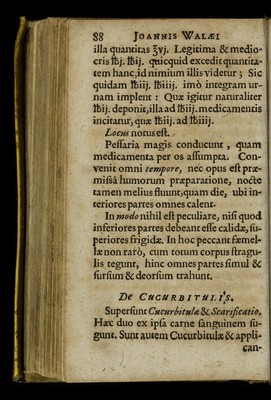 88 JOANNIS WALÆI
illa quantitas ℥vj. Legitima & medio-
cris ℔j. ℔ij. quicquid excedit quantita-
tem hanc, id nimium illis videtur; Sic
quidam ℔iij. ℔iiij. imò integram ur-
nam implent: Quæ igitur naturaliter
℔ij. deponit, illa ad ℔iij. medicamentis
incitatur, quæ ℔iij. ad ℔iiij.
Locus notus est.
Pessaria magis conducunt, quam
medicamenta per os assumpta. Con-
venit omni tempore, nec opus est præ-
missâ humorum præparatione, nocte
tamen melius fluunt, quam die, ubi in-
teriores partes omnes calent.
In modo nihil est peculiare, nisi quod
inferiores partes debeant esse calidæ, su-
periores frigidæ. In hoc peccant fœmel-
læ non rarò, cum totum corpus stragu-
lis tegunt, hinc omnes partes simul &
sursum & deorsum trahunt.
De CUCURBITULIS.
Supersunt Cucurbitulæ & Scarificatio.
Hæc duo ex ipsa carne sanguinem su-
gunt. Sunt autem Cucurbitulæ & appli-
can-